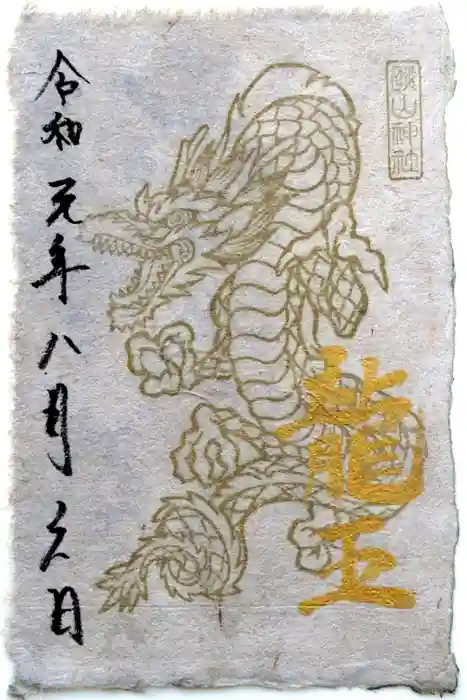 山神社
龍王
令和元年八月六日